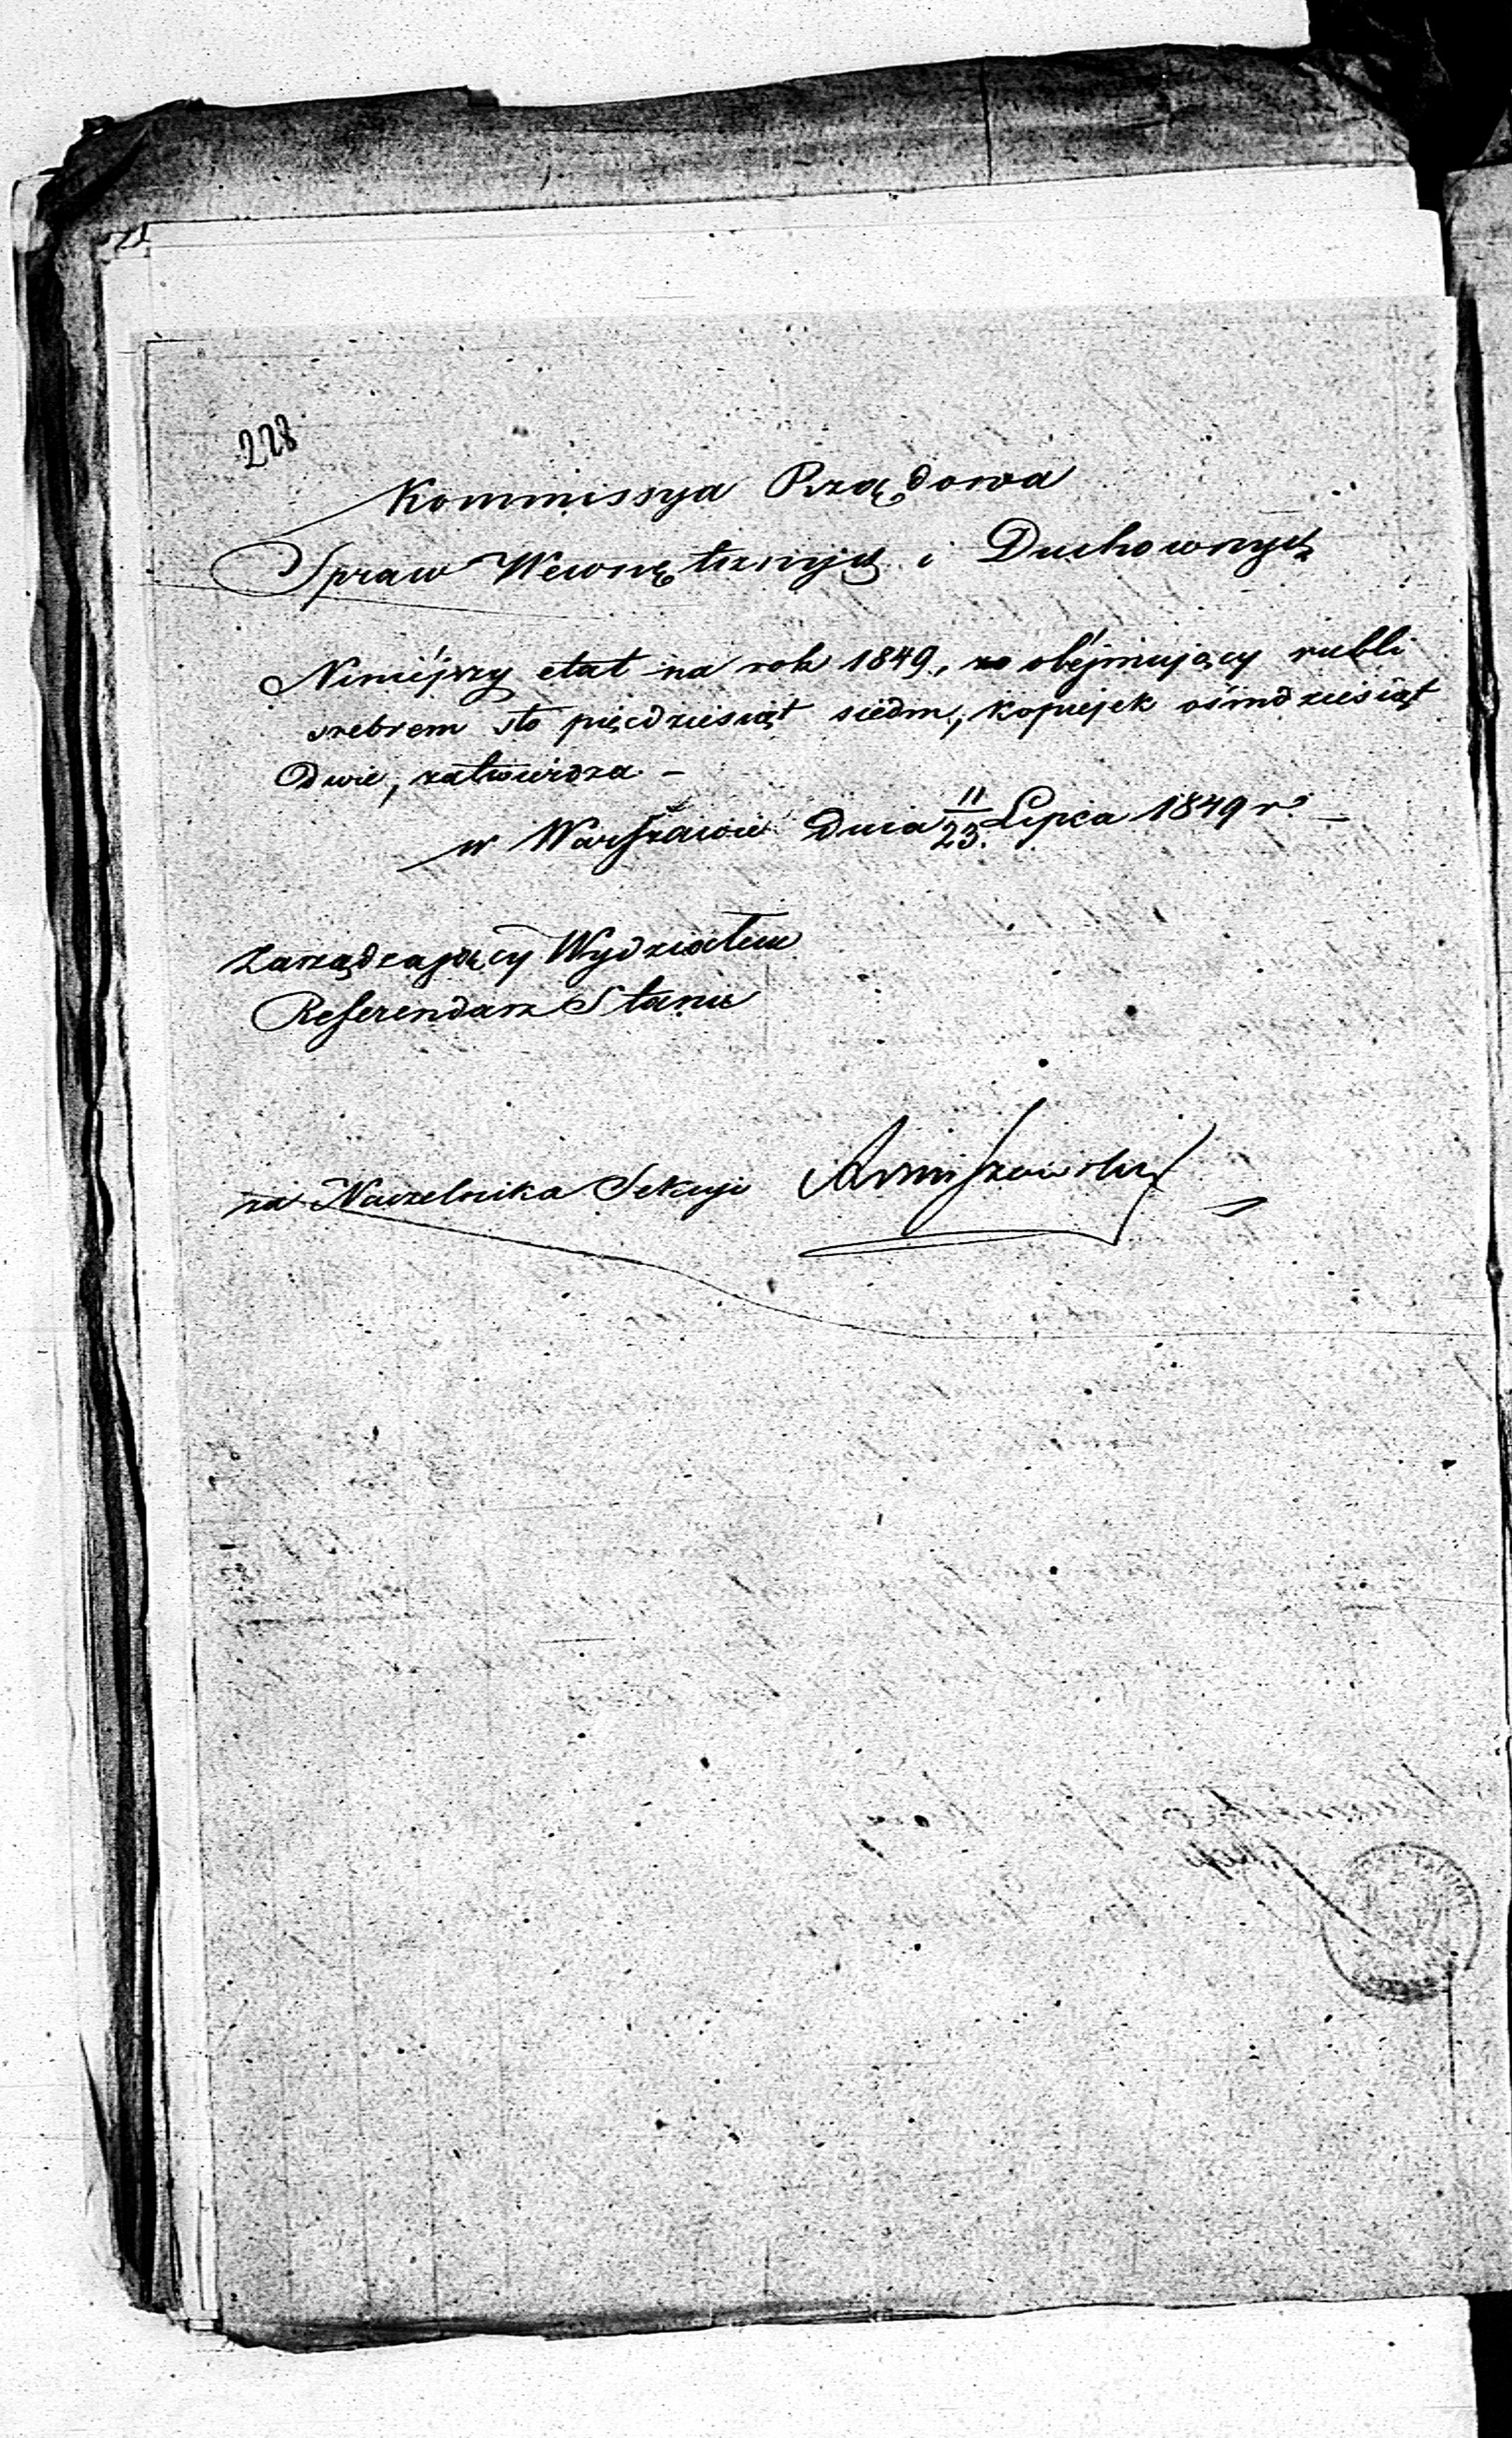 228
Kommissya Rządowa
Spraw Wewnętrznych i Duchownych
Niniéjszy etat na rok 1849, obéjmujący rubli
srebrem sto pięćdziesiąt siedm, kopiejek ośmdziesiąt
Dwie, zatwierdza. –
w Warszawie Dnia 11/23. Lipca 1849 r. –
Zarządzający Wydziałem
Referendarz Stanu
za Naczelnika Sekcyi